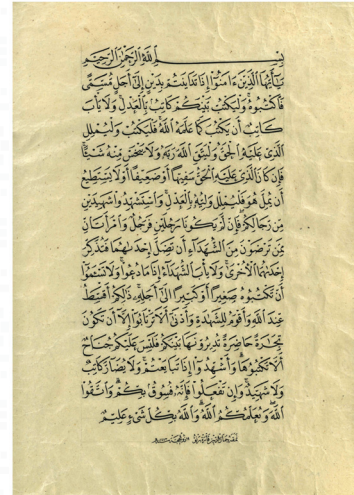 بِسْمِ اللَّهِ الرَّحْمٰنِ الرَّحِيْمِ
يَآأَيُّهَا الَّذِينَ ءَامَنُوٓا إِذَا تَدَايَنتُم بِدَيْنٍ إِلٰٓى أَجَلٍ مُّسَمًّى
فَاكْتُبُوهُ وَلْيَكْتُب بَّيْنَكُمْ كَاتِبٌ بِالْعَدْلِ وَلَا يَأْبَ
كَاتِبٌ أَن يَكْتُبَ كَمَا عَلَّمَهُ اللَّهُ فَلْيَكْتُبْ وَلْيُمْلِلِ
الَّذِى عَلَيْهِ الْحَقُّ وَلْيَتَّقِ اللَّهَ رَبَّهُ وَلَا يَبْخَسْ مِنْهُ شَيْئًا
فَإِن كَانَ الَّذِى عَلَيْهِ الْحَقُّ سَفِيهًا أَوْ ضَعِيفًا أَوْ لَا يَسْتَطِيعُ
أَن يُمِلَّ هُوَ فَلْيُمْلِلْ وَلِيُّهُ بِالْعَدْلِ وَاسْتَشْهِدُوا شَهِيدَيْنِ
مِن رِّجَالِكُمْ فَإِن لَّمْ يَكُونَا رَجُلَيْنِ فَرَجُلٌ وَامْرَأَتَانِ
مِمَّن تَرْضَوْنَ مِنَ الشُّهَدَآءِ أَن تَضِلَّ إِحْدَىٰهُمَا فَتُذَكِّرَ
إِحْدَىٰهُمَا الْأُخْرَىٰ وَلَا يَأْبَ الشُّهَدَآءُ إِذَا مَا دُعُوا وَلَا تَسْئَمُوٓا
أَن تَكْتُبُوهُ صَغِيرًا أَوْ كَبِيرًا إِلٰٓى أَجَلِهِ ذَٰلِكُمْ أَقْسَطُ
عِندَ اللَّهِ وَأَقْوَمُ لِلشَّهَٰدَةِ وَأَدْنَىٰٓ أَلَّا تَرْتَابُوٓا إِلَّآ أَن تَكُونَ
تِجَٰرَةً حَاضِرَةً تُدِيرُونَهَا بَيْنَكُمْ فَلَيْسَ عَلَيْكُمْ جُنَاحٌ
أَلَّا تَكْتُبُوهَا وَأَشْهِدُوٓا إِذَا تَبَايَعْتُمْ وَلَا يُضَآرَّ كَاتِبٌ
وَلَا شَهِيدٌ وَإِن تَفْعَلُوا فَإِنَّهُ فُسُوقٌ بِكُمْ وَاتَّقُوا
اللَّهَ وَيُعَلِّمُكُمُ اللَّهُ وَاللَّهُ بِكُلِّ شَىْءٍ عَلِيمٌ